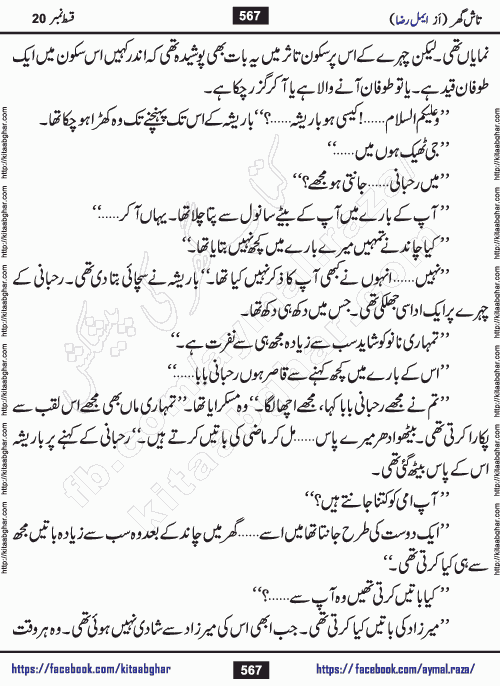 تاش گھر (از ایمل رضا)
567
قسط نمبر 20
نمایاں تھی۔ لیکن چہرے کے اس پر سکون تاثر میں یہ بات بھی پوشیدہ تھی کہ اندر کہیں اس سکون میں ایک
طوفان قید ہے۔ یا تو طوفان آنے والا ہے یا آ کر گزر چکا ہے۔
’’وعلیکم السلام......! کیسی ہو باریشہ......؟‘‘ باریشہ کے اس تک پہنچنے تک وہ کھڑا ہو چکا تھا۔
’’جی ٹھیک ہوں میں......‘‘
’’میں رحبانی...... جانتی ہو مجھے؟‘‘
’’آپ کے بارے میں آپ کے بیٹے سانول سے پتا چلا تھا۔ یہاں آ کر......‘‘
’’کیا چاند نے تمہیں میرے بارے میں کچھ نہیں بتایا تھا۔‘‘
’’نہیں...... انہوں نے کبھی آپ کا ذکر نہیں کیا تھا۔‘‘ باریشہ نے سچائی بتا دی تھی۔ رحبانی کے
چہرے پر ایک اداسی جھلکی تھی۔ جس میں دکھ ہی دکھ تھا۔
’’تمہاری نانو کو شاید سب سے زیادہ مجھ ہی سے نفرت ہے۔‘‘
’’اس کے بارے میں کچھ کہنے سے قاصر ہوں رحبانی بابا......‘‘
’’تم نے مجھے رحبانی بابا کہا، مجھے اچھا لگا۔‘‘ وہ مسکرایا تھا۔ ’’تمہاری ماں بھی مجھے اس لقب سے
پکارا کرتی تھی۔ بیٹھو ادھر میرے پاس...... مل کر ماضی کی باتیں کرتے ہیں۔‘‘ رحبانی کے کہنے پر باریشہ
اس کے پاس بیٹھ گئی تھی۔
’’آپ امی کو کتنا جانتے ہیں؟‘‘
’’ایک دوست کی طرح جانتا تھا میں اسے...... گھر میں چاند کے بعد وہ سب سے زیادہ باتیں مجھ
سے ہی کیا کرتی تھی۔‘‘
’’کیا باتیں کرتی تھیں وہ آپ سے......؟‘‘
’’میرزاد کی باتیں کیا کرتی تھی۔ جب ابھی اس کی میرزاد سے شادی نہیں ہوئی تھی۔ وہ ہر وقت
https://facebook.com/kitaabghar
567
https://facebook.com/aymal.raza/
http://kitaabghar.com
کتاب گھر کی پیشکش
fb.com/aymal.raza
kitaabghar.com